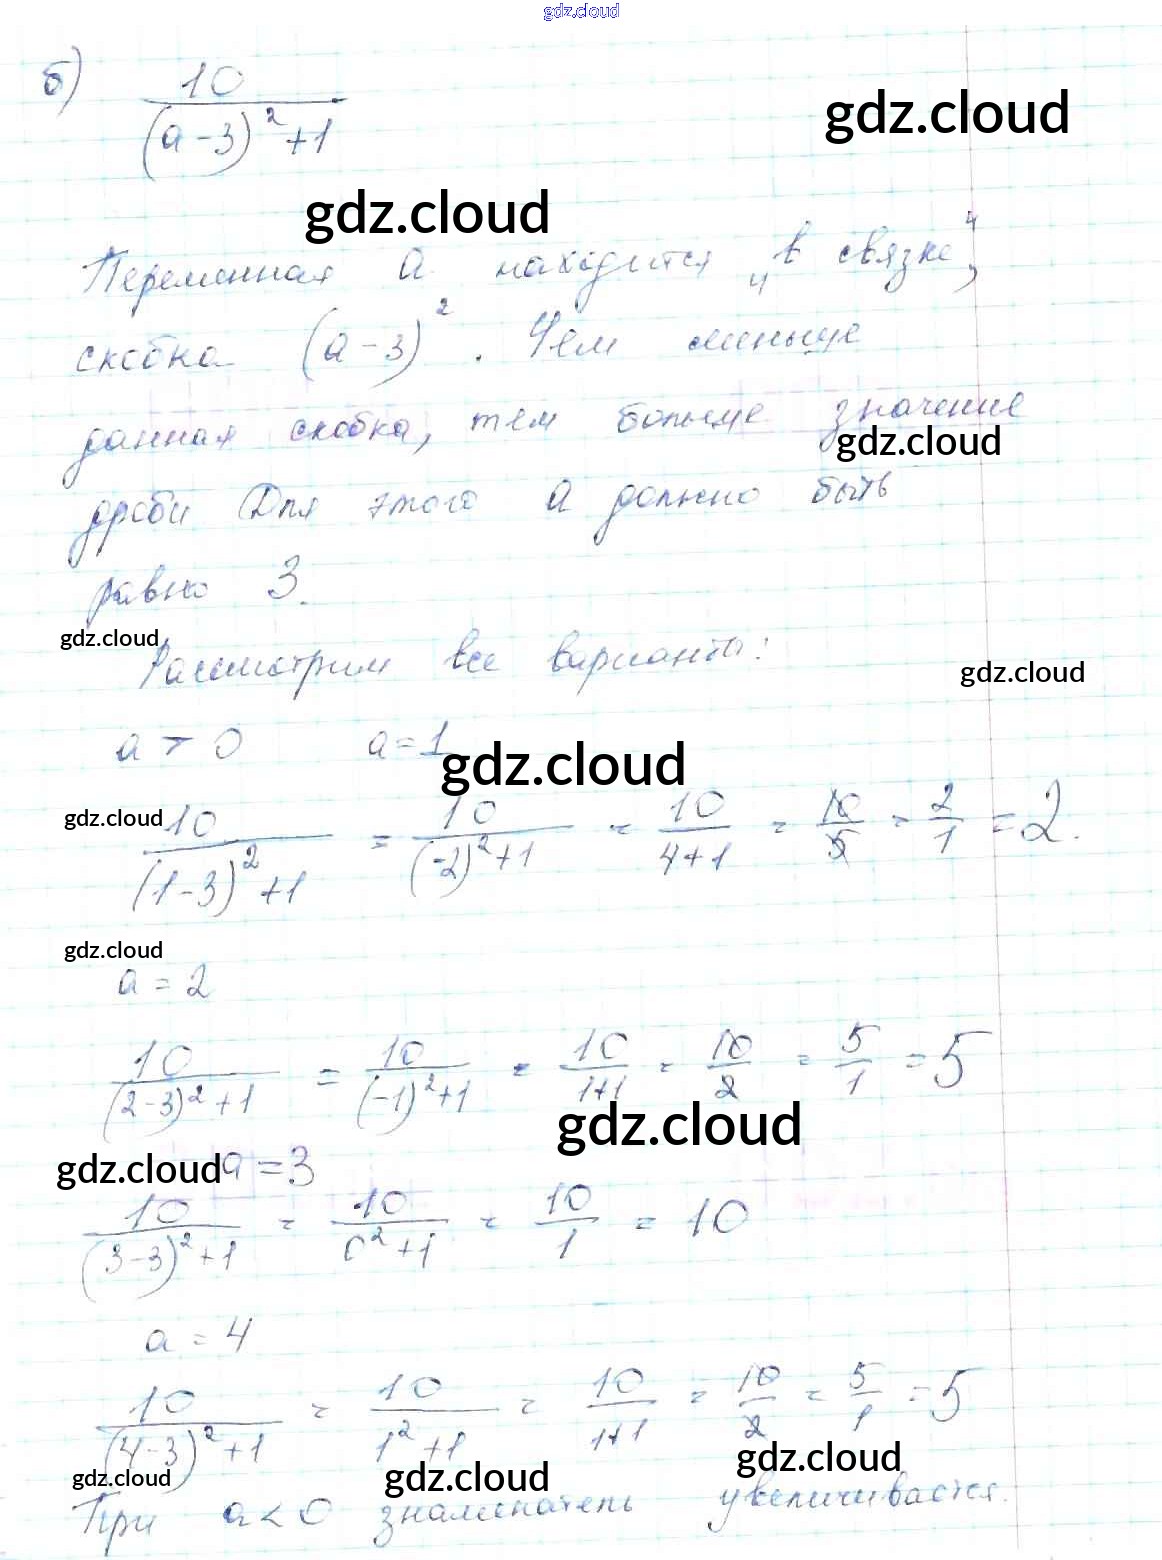 gdz.cloud
б) 10/((a-3)²+1)
gdz.cloud
gdz.cloud
Переменная a находится „в связке",
скобка (a-3)². Чем меньше
данная скобка, тем больше значение
gdz.cloud
дроби Для этого a должно быть
равно 3.
gdz.cloud
Рассмотрим все варианты:
gdz.cloud
a > 0 a=1
gdz.cloud
gdz.cloud
10/((1-3)²+1) = 10/((-2)²+1) = 10/(4+1) = 10/5 = 2/1 = 2.
gdz.cloud
a = 2
10/((2-3)²+1) = 10/((-1)²+1) = 10/(1+1) = 10/2 = 5/1 = 5
gdz.cloud
gdz.cloud a=3
10/((3-3)²+1) = 10/(0²+1) = 10/1 = 10
a = 4
10/((4-3)²+1) = 10/(1²+1) = 10/(1+1) = 10/2 = 5/1 = 5
gdz.cloud
gdz.cloud
gdz.cloud
При a<0 знаменатель увеличивается.